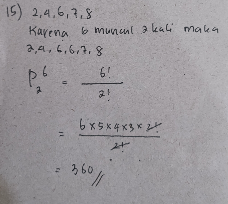 15) 2,4,6,7,8
Karena 6 muncul 2 kali maka
2,4,6,6,7,8
P 6 2 = 6! / 2!
= 6 x 5 x 4 x 3 x 2! / 2!
= 360 //